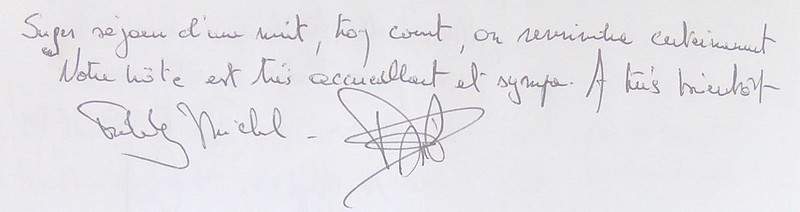 Super séjour d'une nuit, trop court, on reviendra certainement
Notre hôte est très accueillant et sympa. A très bientôt
Michel -